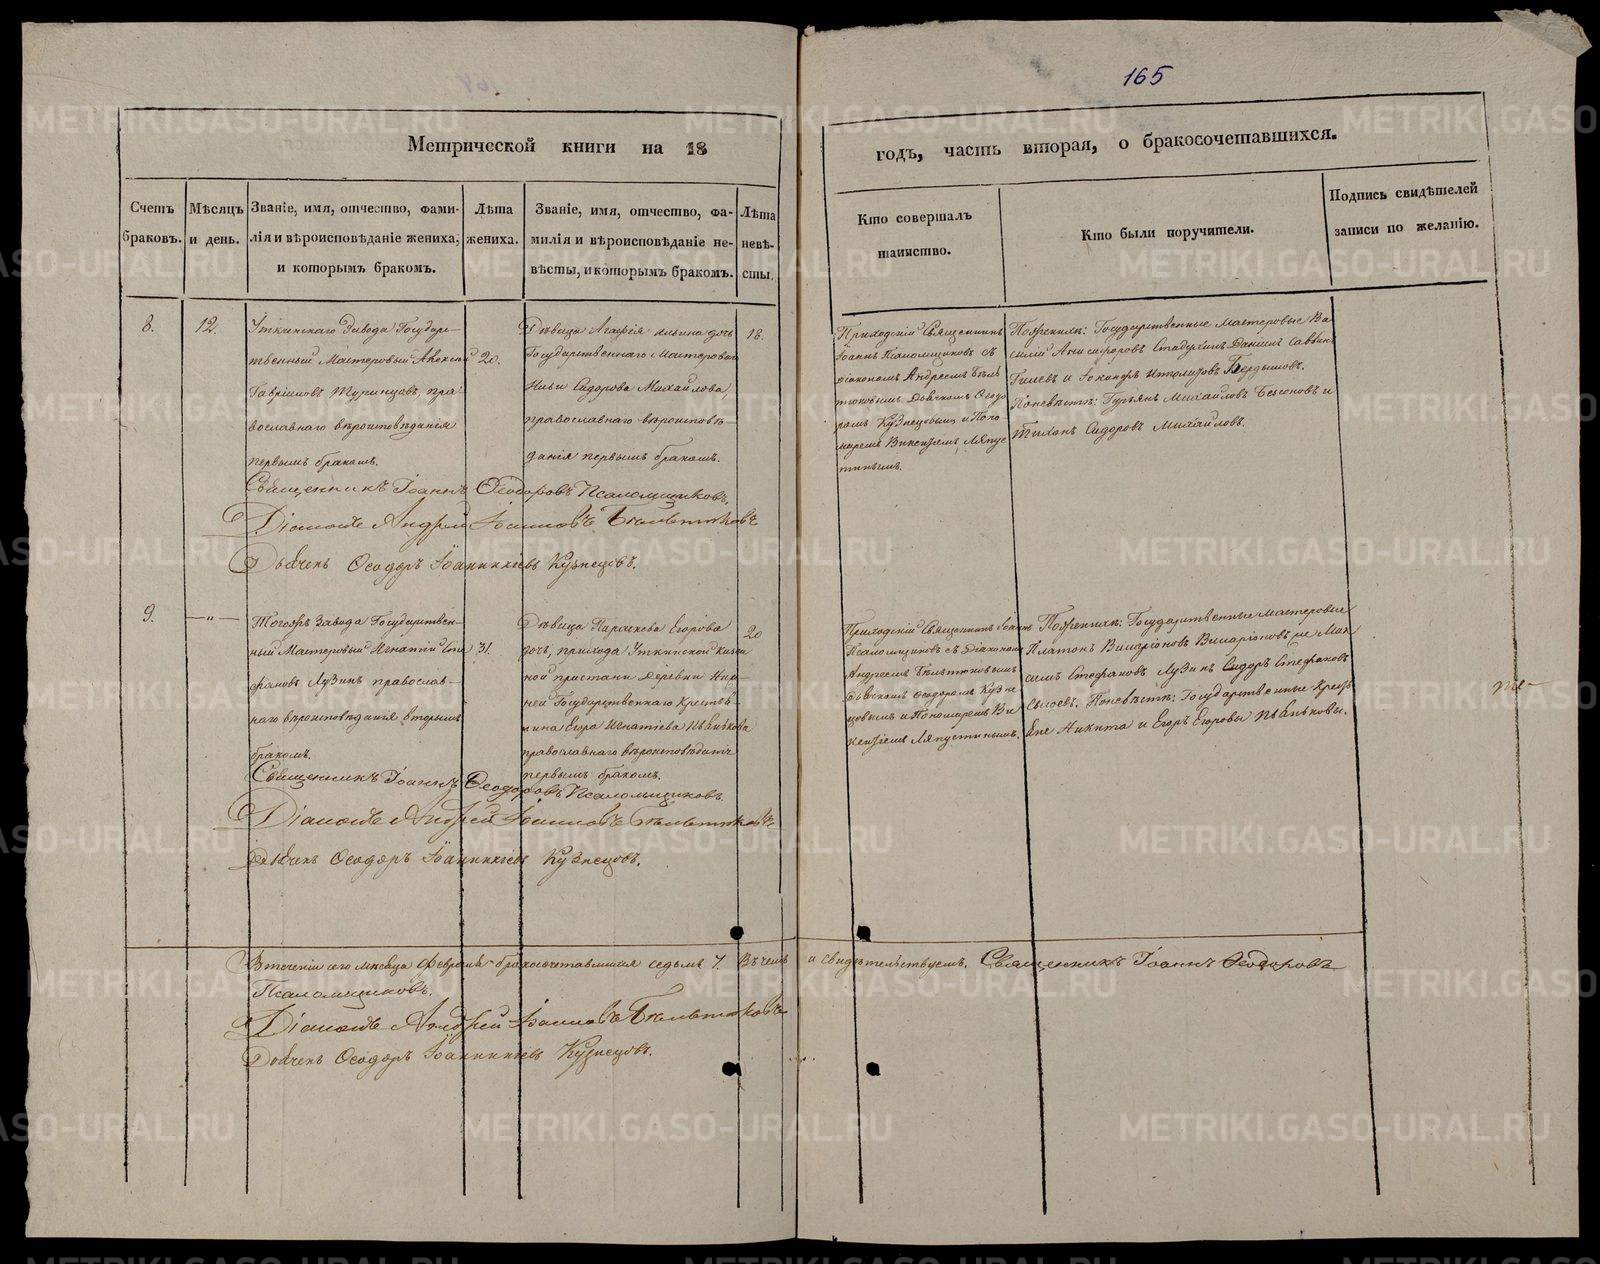 165
Метрической книги на 18
годъ, часть вторая, о бракосочетавшихся.
Счетъ браковъ.
Мѣсяцъ и день.
Званіе, имя, отчество, фами-
лія и вѣроисповѣданіе жениха,
и которымъ бракомъ.
Лѣта
жениха.
Званіе, имя, отчество, фа-
милія и вѣроисповѣданіе не-
вѣсты, и которымъ бракомъ.
Лѣта
невѣ-
сты.
Кто совершалъ
таинство.
Кто были поручители.
Подпись свидѣтелей
записи по желанію.
8.
12.
Уткинскаго Завода Государ-
ственный Мастеровый Алексѣй
Гавріиловъ Турынцовъ, пра-
вославнаго вѣроисповѣданія
первымъ бракомъ.
20.
Дѣвица Агафія Ильина дочь
Государственнаго Мастероваго
Ильи Сидорова Михайлова,
православнаго вѣроисповѣ-
данія первымъ бракомъ.
18.
Приходскій Священникъ
Іоаннъ Псаломщиковъ съ
Діакономъ Андреемъ Бѣль
тюковымъ Дьячкомъ Ѳеодо
ромъ Кузнецовымъ и Поно-
маремъ Викентіемъ Ляпус
тинымъ.
Поженихѣ: Государственные мастеровые Ва
силій Анисифоровъ Стадухинъ Даніилъ Саввин
и
Поневѣстѣ: Гурьянъ Михайловъ Безсоновъ и
Тихонъ Сидоровъ Михайловъ.
Священникъ Іоаннъ Ѳеодоровъ Псаломщиковъ.
Діаконъ Андрей Іоанновъ Бѣльтюковъ
Дьячекъ Ѳеодоръ Іоанникіевъ Кузнецовъ.
9.
—"—
Тогожъ Завода Государствен-
ный Мастеровый Игнатій Сте
фановъ Лузинъ православ-
наго вѣроисповѣданія вторымъ
бракомъ.
31.
Дѣвица Параскева Егорова
дочь, прихода Уткинской Казен
ной пристани деревни Ниж-
ней Государственнаго Крестья
нина Егора Игнатіева Пѣнькова
православнаго вѣроисповѣданія
первымъ бракомъ.
20
Приходскій Священникъ Іоаннъ
Псаломщиковъ съ Діакономъ
Андреемъ Бѣльтюковымъ
Дьячкомъ Ѳеодоромъ Кузне
цовымъ и Пономаремъ Ви
кентіемъ Ляпустинымъ.
Поженихѣ: Государственные мастеровые
Платонъ Виларіоновъ Мак
симъ Стефановъ Лузинъ Сидоръ Стефановъ
Сысоевъ. Поневѣстѣ: Государственные Кресть
яне Никита и Егоръ Егоровы Пѣньковы.
Священникъ Іоаннъ Ѳеодоровъ Псаломщиковъ.
Діаконъ Андрей Іоанновъ Бѣльтюковъ
Дьячекъ Ѳеодоръ Іоанникіевъ Кузнецовъ.
Втеченіи сего мѣсяца Февраля бракосочетавшихся седьмъ 7. Въ чемъ и свидѣтельствуемъ. Священникъ Іоаннъ Ѳеодоровъ
Псаломщиковъ.
Діаконъ Андрей Іоанновъ Бѣльтюковъ
Дьячекъ Ѳеодоръ Іоанникіевъ Кузнецовъ.
METRIKI.GASO-URAL.RU